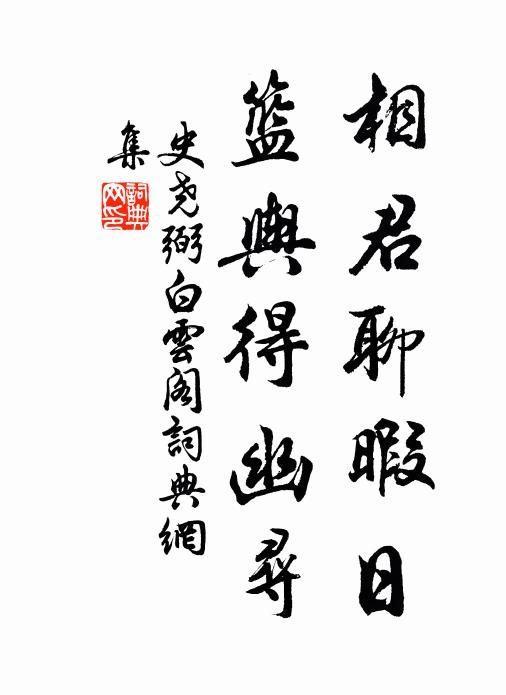 相君聊暇日
籃輿得幽尋
史堯弼白雲阁詞典網
集
詞典网印